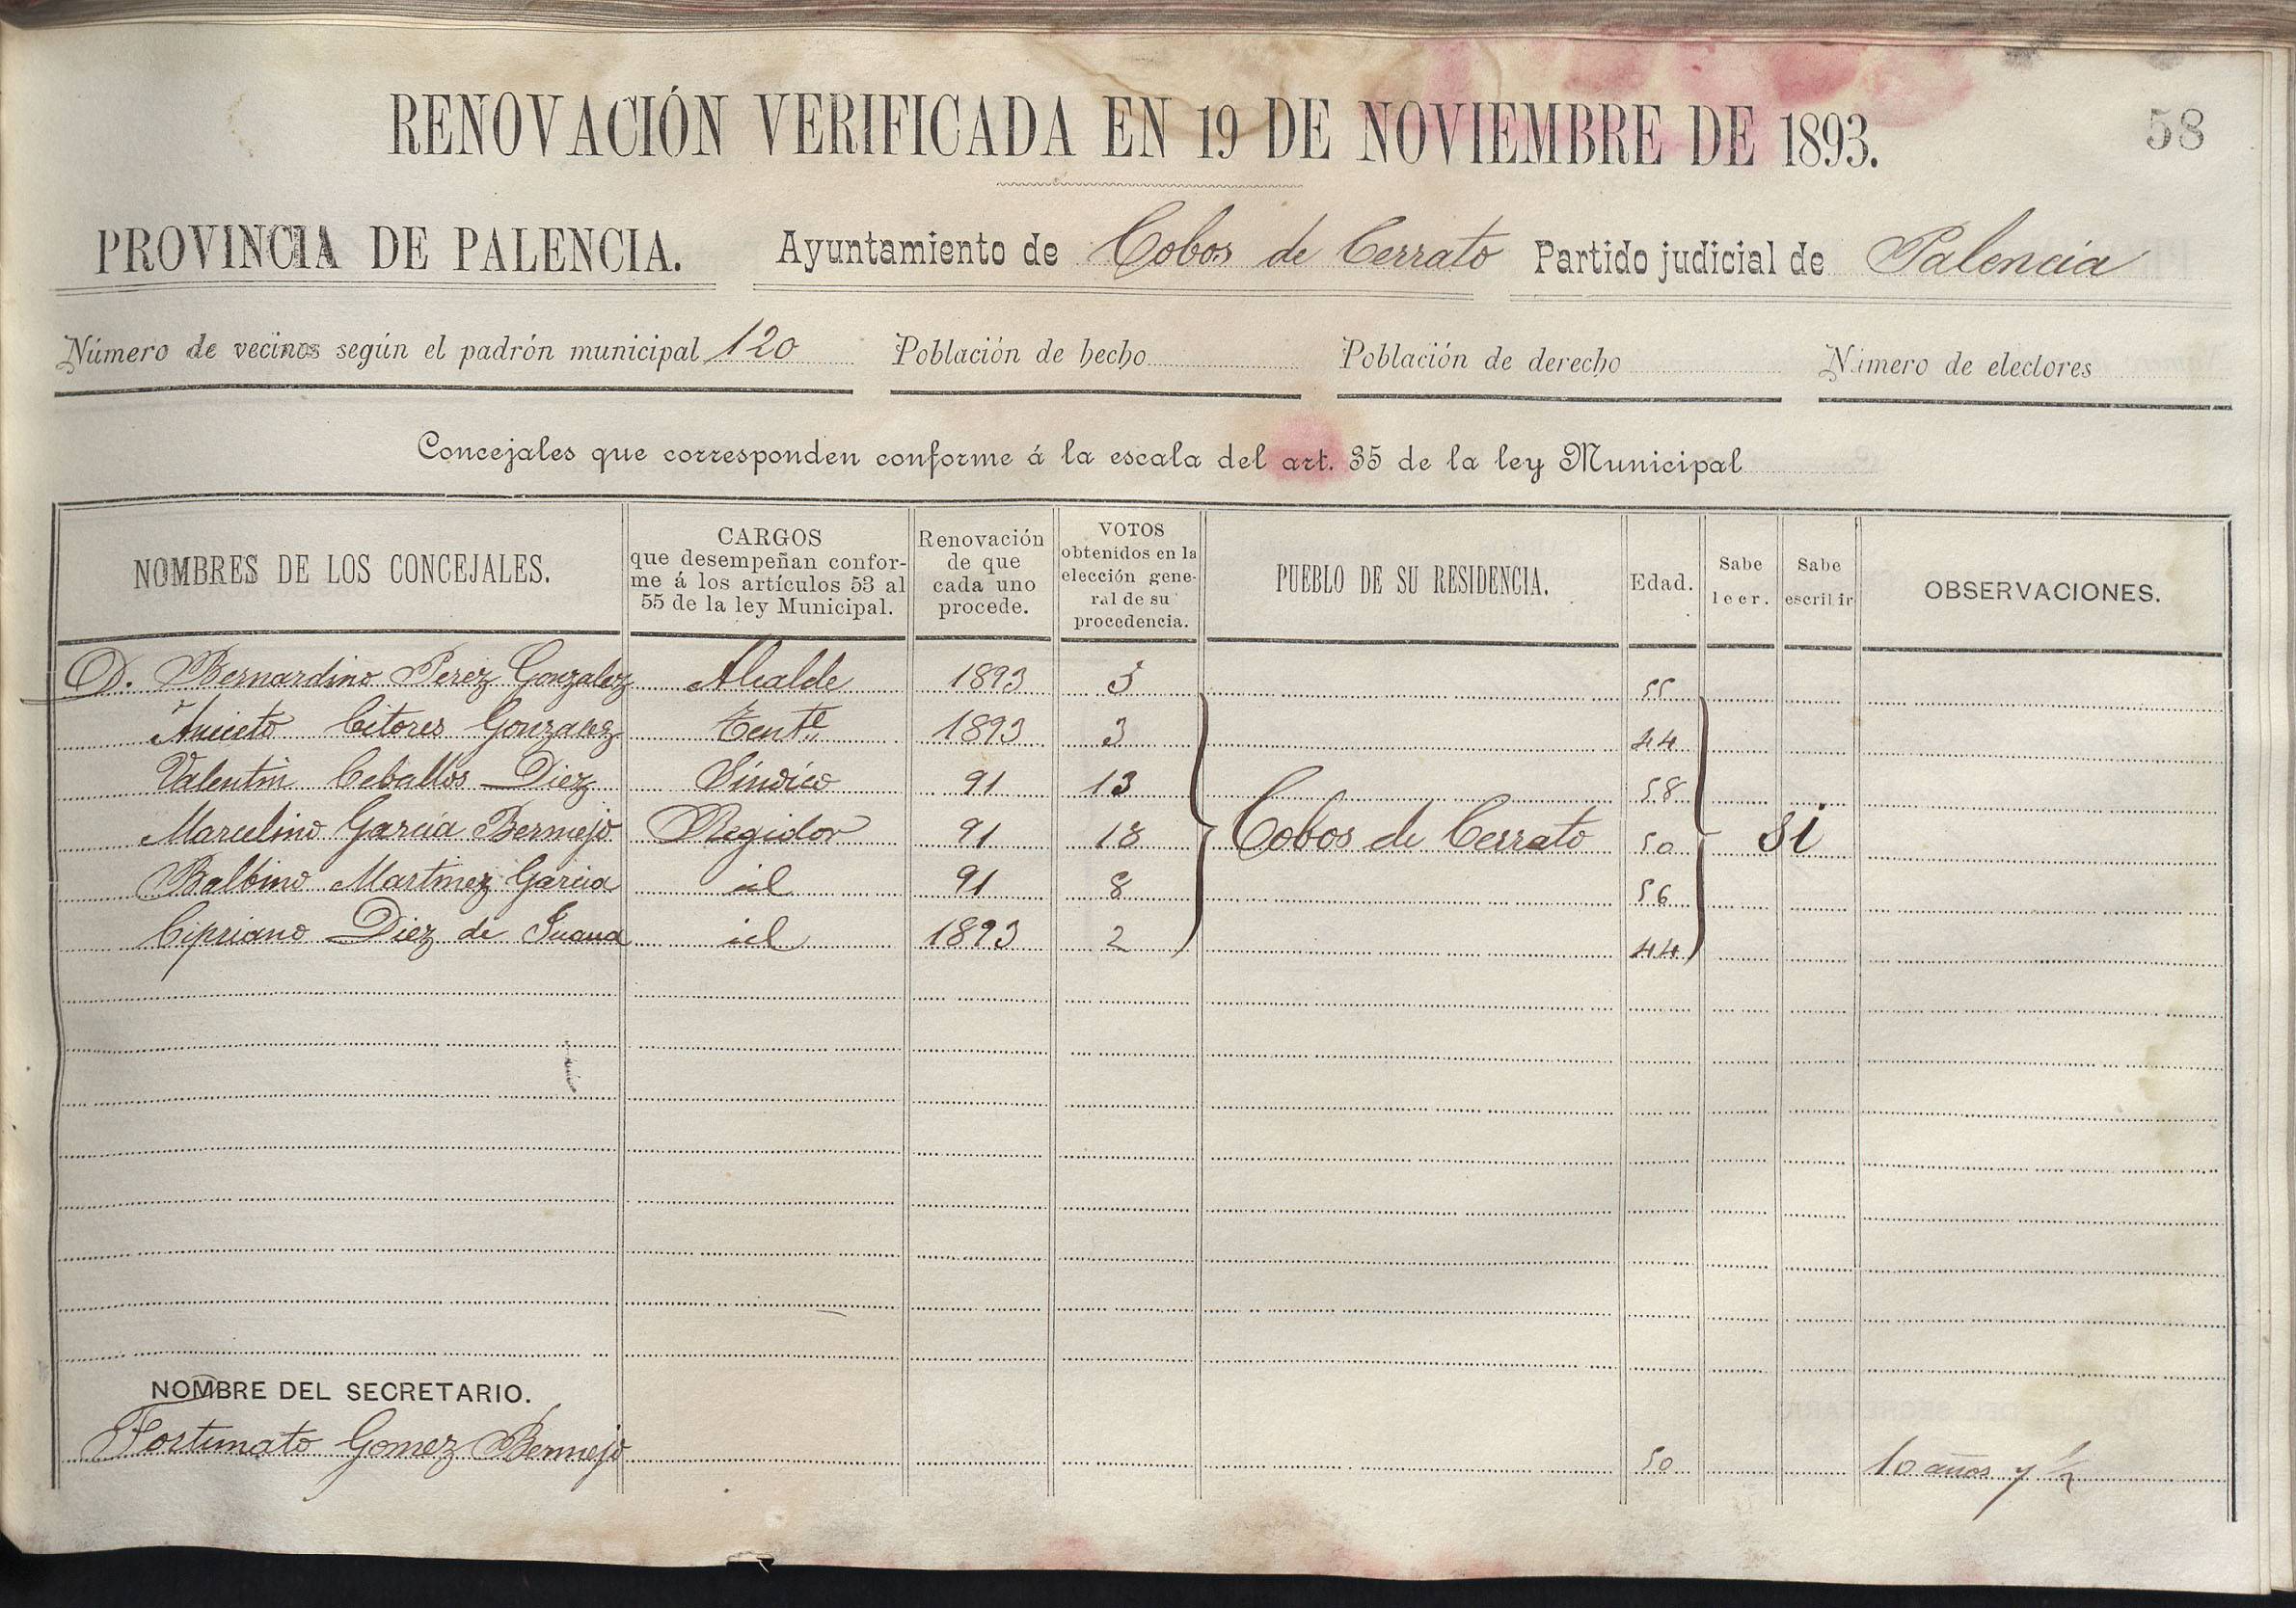 58
RENOVACIÓN VERIFICADA EN 19 DE NOVIEMBRE DE 1893.
PROVINCIA DE PALENCIA. Ayuntamiento de Cobos de Cerrato Partido judicial de Palencia
Número de vecinos según el padrón municipal 120 Población de hecho Población de derecho Número de electores
Concejales que corresponden conforme á la escala del art. 35 de la ley Municipal
NOMBRES DE LOS CONCEJALES.
CARGOS
que desempeñan confor-
me á los artículos 53 al
55 de la ley Municipal.
Renovación
de que
cada uno
procede.
VOTOS
obtenidos en la
elección gene-
ral de su
procedencia.
PUEBLO DE SU RESIDENCIA.
Edad.
Sabe
leer.
Sabe
escribir
OBSERVACIONES.
D. Bernardino Perez Gonzalez Alcalde 1893 5 55
Aniceto Citores Gonzalez Tente 1893 3 44
Valentin Ceballos Diez Síndico 91 13 58
Marcelino García Bermejo Regidor 91 18 Cobos de Cerrato 50 Si
Balbino Martinez Garcia id 91 8 56
Cipriano Diez de Juana id 1893 2 44
NOMBRE DEL SECRETARIO.
Fortunato Gomez Bermejo 50 10 años y ½